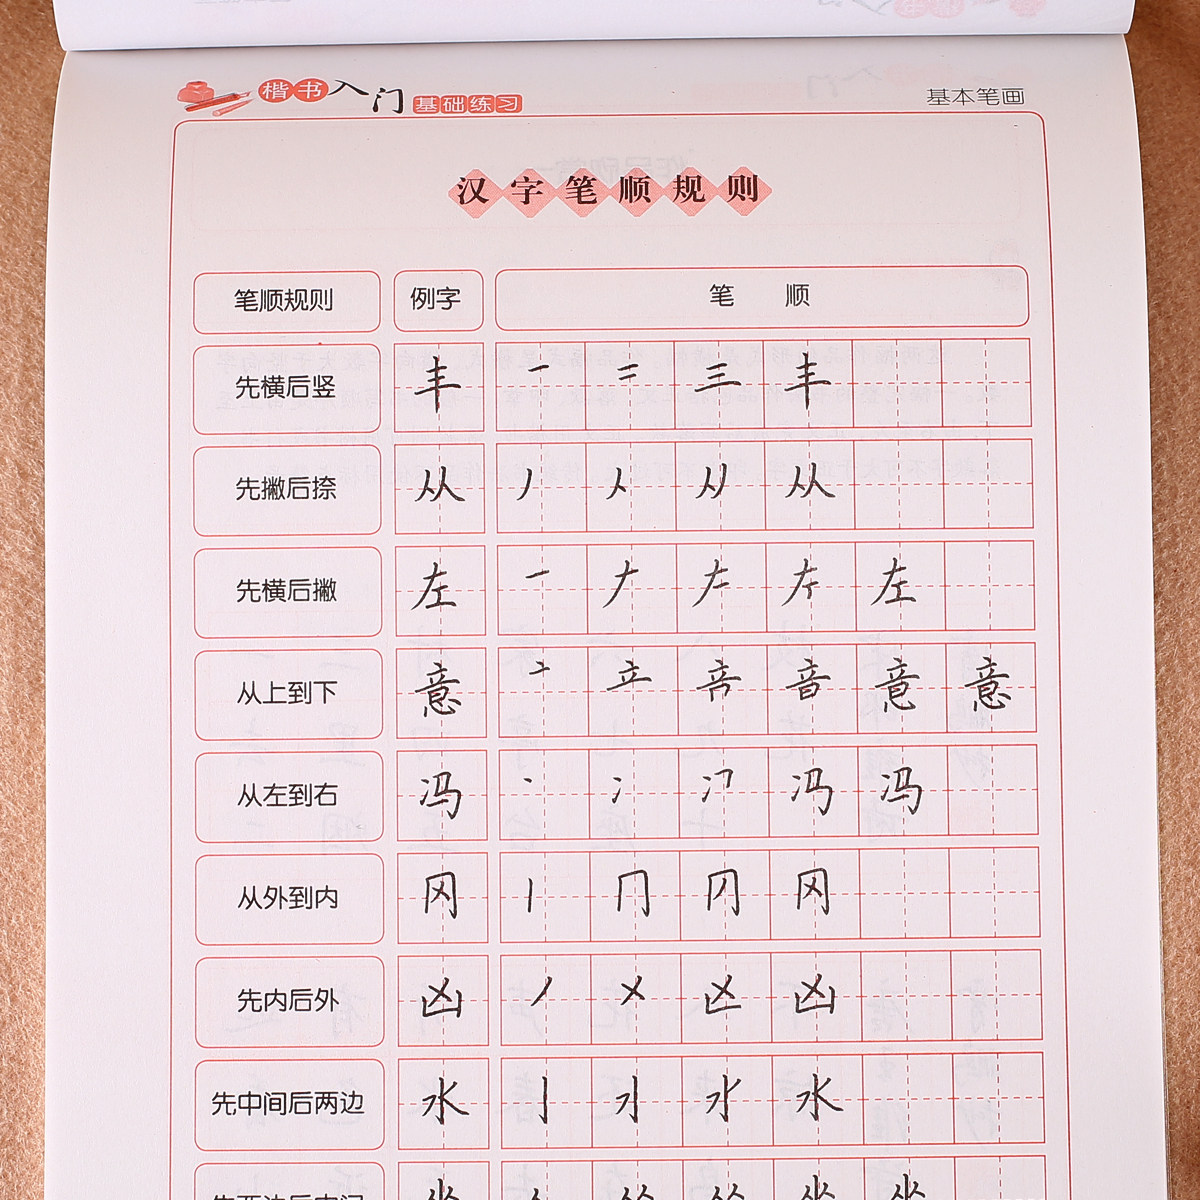 楷书入门基础练习 基本笔画
汉字笔顺规则
笔顺规则 例字 笔 顺
先横后竖 丰 一 二 三 丰
先撇后捺 从 丿 人 从
先横后撇 左 一 𠂇 左
从上到下 意 亠 立 音 意
从左到右 冯 丶 冫 冯 冯
从外到内 冈 丨 冂 冈
先内后外 凶 丿 㐅 凶 凶
先中间后两边 水 亅 水